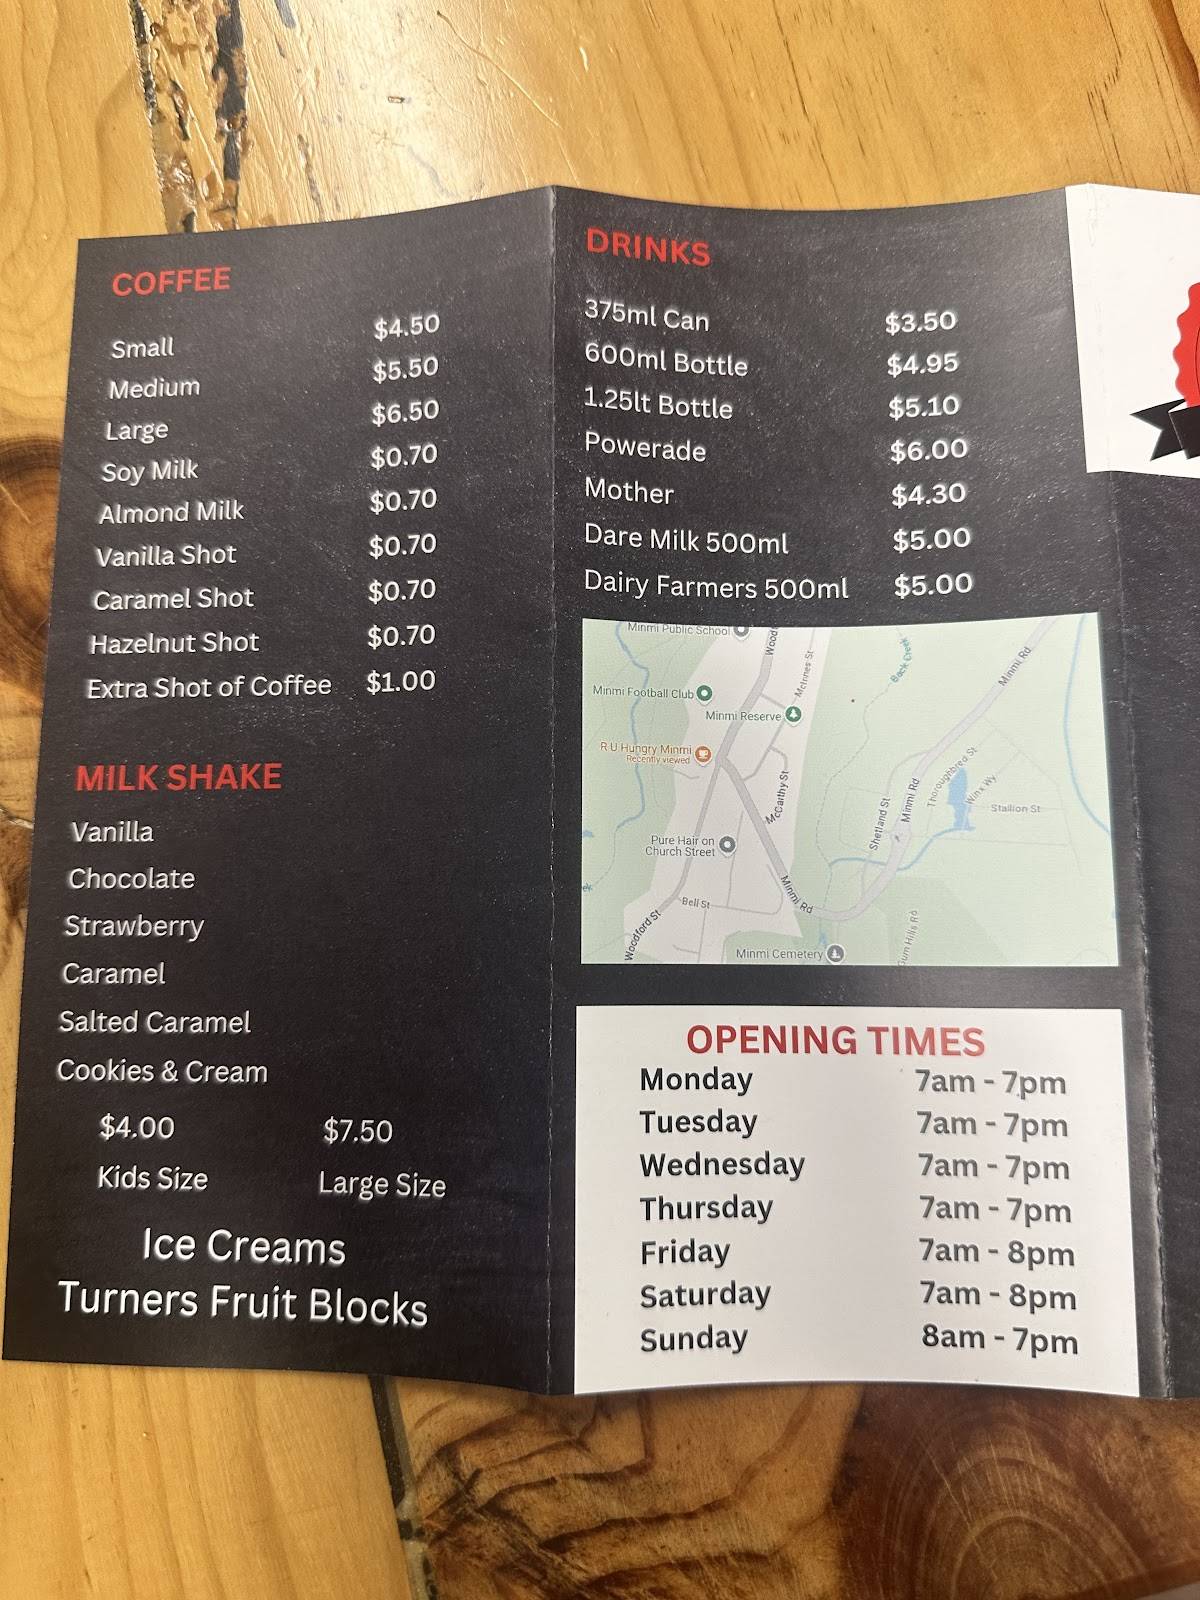 COFFEE
Small $4.50
Medium $5.50
Large $6.50
Soy Milk $0.70
Almond Milk $0.70
Vanilla Shot $0.70
Caramel Shot $0.70
Hazelnut Shot $0.70
Extra Shot of Coffee $1.00
MILK SHAKE
Vanilla
Chocolate
Strawberry
Caramel
Salted Caramel
Cookies & Cream
$4.00 $7.50
Kids Size Large Size
Ice Creams
Turners Fruit Blocks
DRINKS
375ml Can $3.50
600ml Bottle $4.95
1.25lt Bottle $5.10
Powerade $6.00
Mother $4.30
Dare Milk 500ml $5.00
Dairy Farmers 500ml $5.00
Minmi Public School
McInnes St
Back Creek
Minmi Rd
Minmi Football Club
Minmi Reserve
R U Hungry Minmi
Recently viewed
McCarthy St
Thoroughbred St
Winx Wy
Stallion St
Shetland St
Minmi Rd
Pure Hair on
Church Street
Minmi Rd
Bell St
Woodford St
Gum Hills Rd
Minmi Cemetery
OPENING TIMES
Monday 7am - 7pm
Tuesday 7am - 7pm
Wednesday 7am - 7pm
Thursday 7am - 7pm
Friday 7am - 8pm
Saturday 7am - 8pm
Sunday 8am - 7pm